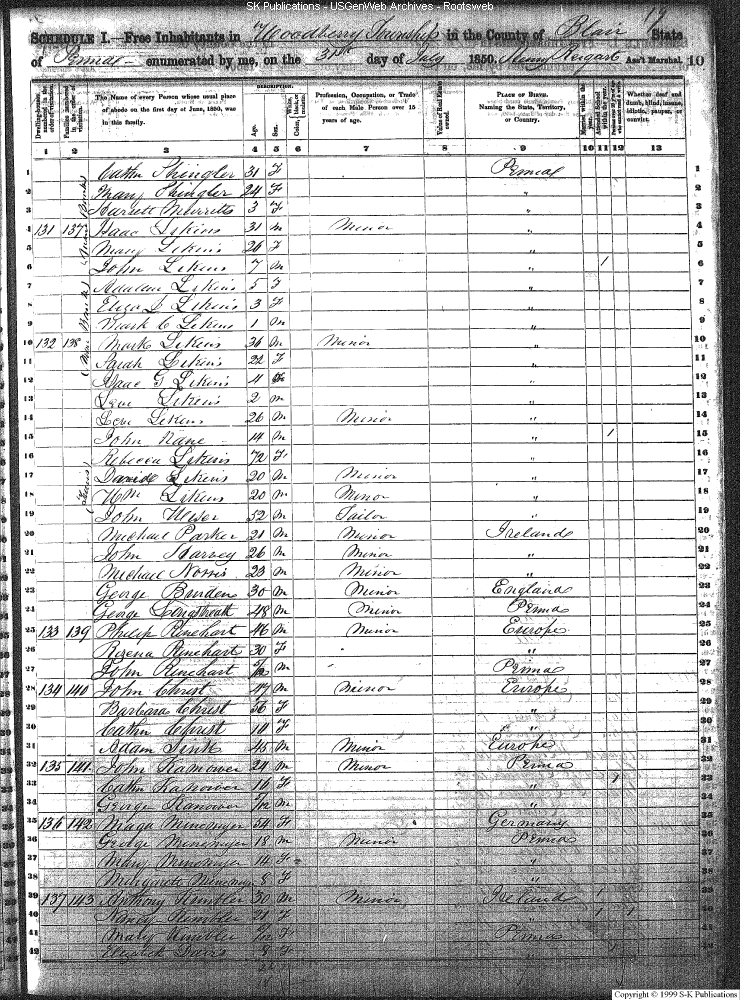 SK Publications - USGenWeb Archives - Rootsweb
19
SCHEDULE I.—Free Inhabitants in Woodberry Township in the County of Blair State
of Penna enumerated by me, on the 31st day of July 1850. Henry Ass't Marshal. 10
Dwelling-houses numbered in the order of visitation.
Families numbered in the order of visitation.
The Name of every Person whose usual place of abode on the first day of June, 1850, was in this family.
DESCRIPTION.
Age.
Sex.
Color, White, black, or mulatto.
Profession, Occupation, or Trade of each Male Person over 15 years of age.
Value of Real Estate owned.
PLACE OF BIRTH. Naming the State, Territory, or Country.
Married within the year.
Attended School within the year.
Whether deaf and dumb, blind, insane, idiotic, pauper, or convict.
1 2 3 4 5 6 7 8 9 10 11 12 13
1 Cathn Shingler 31 F Penna 1
2 Mary Shingler 24 F " 2
3 Harrett Merritts 3 F " 3
4 131 137 Isaac Likens 31 m Minor " 4
5 Mary Likens 26 F " 5
6 John Likens 7 m " / 6
7 Likens 5 F " 7
8 Eliza Likens 3 F " 8
9 Mark C Likens 1 m " 9
10 132 138 Mark Likens 36 m Minor " 10
11 Sarah Likens 22 F " 11
12 Isaac G Likens 4 " 12
13 Levi Likens 2 m " 13
14 Levi Likens 26 m Minor " 14
15 John Kane 14 m " / 15
16 Rebecca Likens 72 F " 16
17 David Likens 20 m Minor " 17
18 Wm Likens 20 m Minor " 18
19 John Wiser 52 m Tailor " 19
20 Michael Parker 21 m Minor Ireland 20
21 John Harvey 26 m Minor " 21
22 Michael Norris 23 m Minor " 22
23 George Bruden 30 m Minor England 23
24 George Longstreath 48 m Minor Penna 24
25 133 139 Philip Rinehart 46 m Minor Europe 25
26 Rosena Rinehart 30 F " 26
27 John Rinehart m Penna 27
28 134 140 John Christ 47 m Minor Europe 28
29 Barbara Christ 56 F " 29
30 Cathn Christ 10 F " 30
31 Adam Fink 45 m Minor Europe 31
32 135 141 John Kanower 21 m Minor Penna 32
33 Cathn Kanower 16 F " / 33
34 George Kanower m " 34
35 136 142 Minemyer 54 F Germany 35
36 George Minemyer 18 m Minor Penna 36
37 Mary Minemyer 14 F " 37
38 Margarett 8 F " 38
39 137 143 Anthony Kimbler 30 m Minor Ireland / 39
40 Nancy Kimbler 21 F " / / 40
41 Mary Kimbler F Penna 41
42 Elizabeth Davis 8 F " 42
Copyright © 1999 S-K Publications